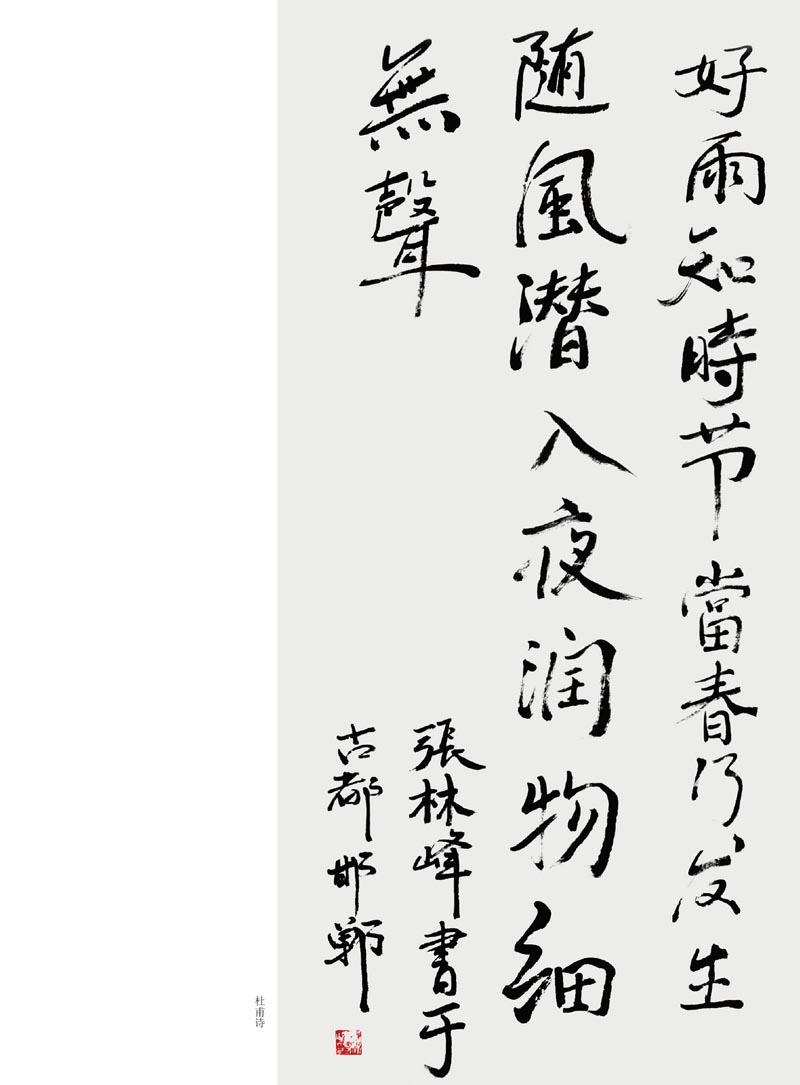 好雨知時节當春乃发生
随風潜入夜润物细
無聲
張林峰書于
古都邯鄲
杜甫诗